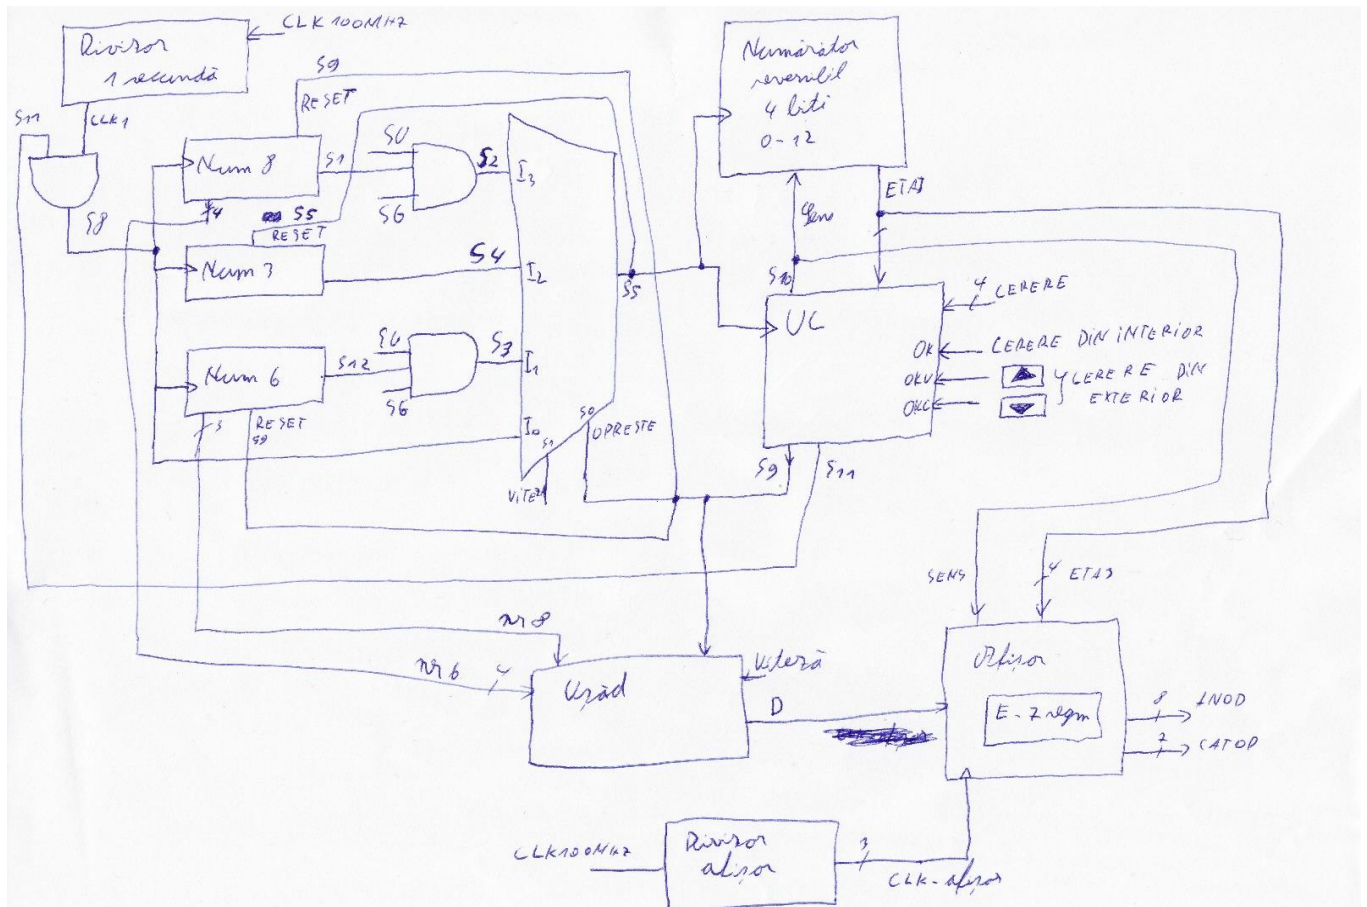 CLK 100MHZ
Divizor
1 secundă
S11
CLK1
S9
RESET
Num 8
S1
S0
S6
S2
I3
4
S5
RESET
S8
Num 3
S4
I2
S5
Num 6
S12
S6
S3
I1
3
RESET
S9
I0
S1
S0
OPRESTE
VITEZA
Numărător
reversibil
4 biti
0-12
ETAJ
Sens
S10
UC
4
CERERE
OK
CERERE DIN INTERIOR
OKU
OKC
CERERE DIN
EXTERIOR
S9
S11
SENS
4
ETAJ
nr 8
nr 6
4
Ușăd
Viteză
D
Afișor
E-7 segm
8
ANOD
7
CATOD
CLK100MHZ
Divizor
afișor
3
CLK-afișor